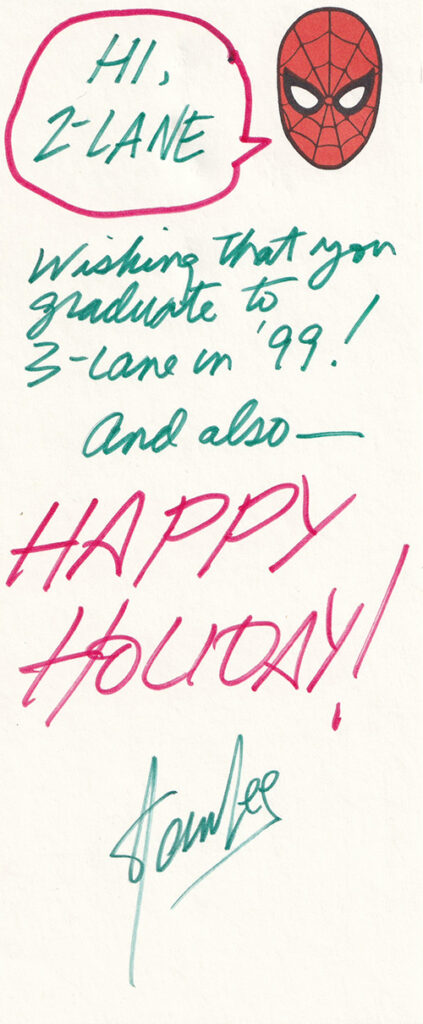 HI,
2-LANE
Wishing that you
graduate to
3-Lane in '99!
And also—
HAPPY
HOLIDAY!
Stan Lee